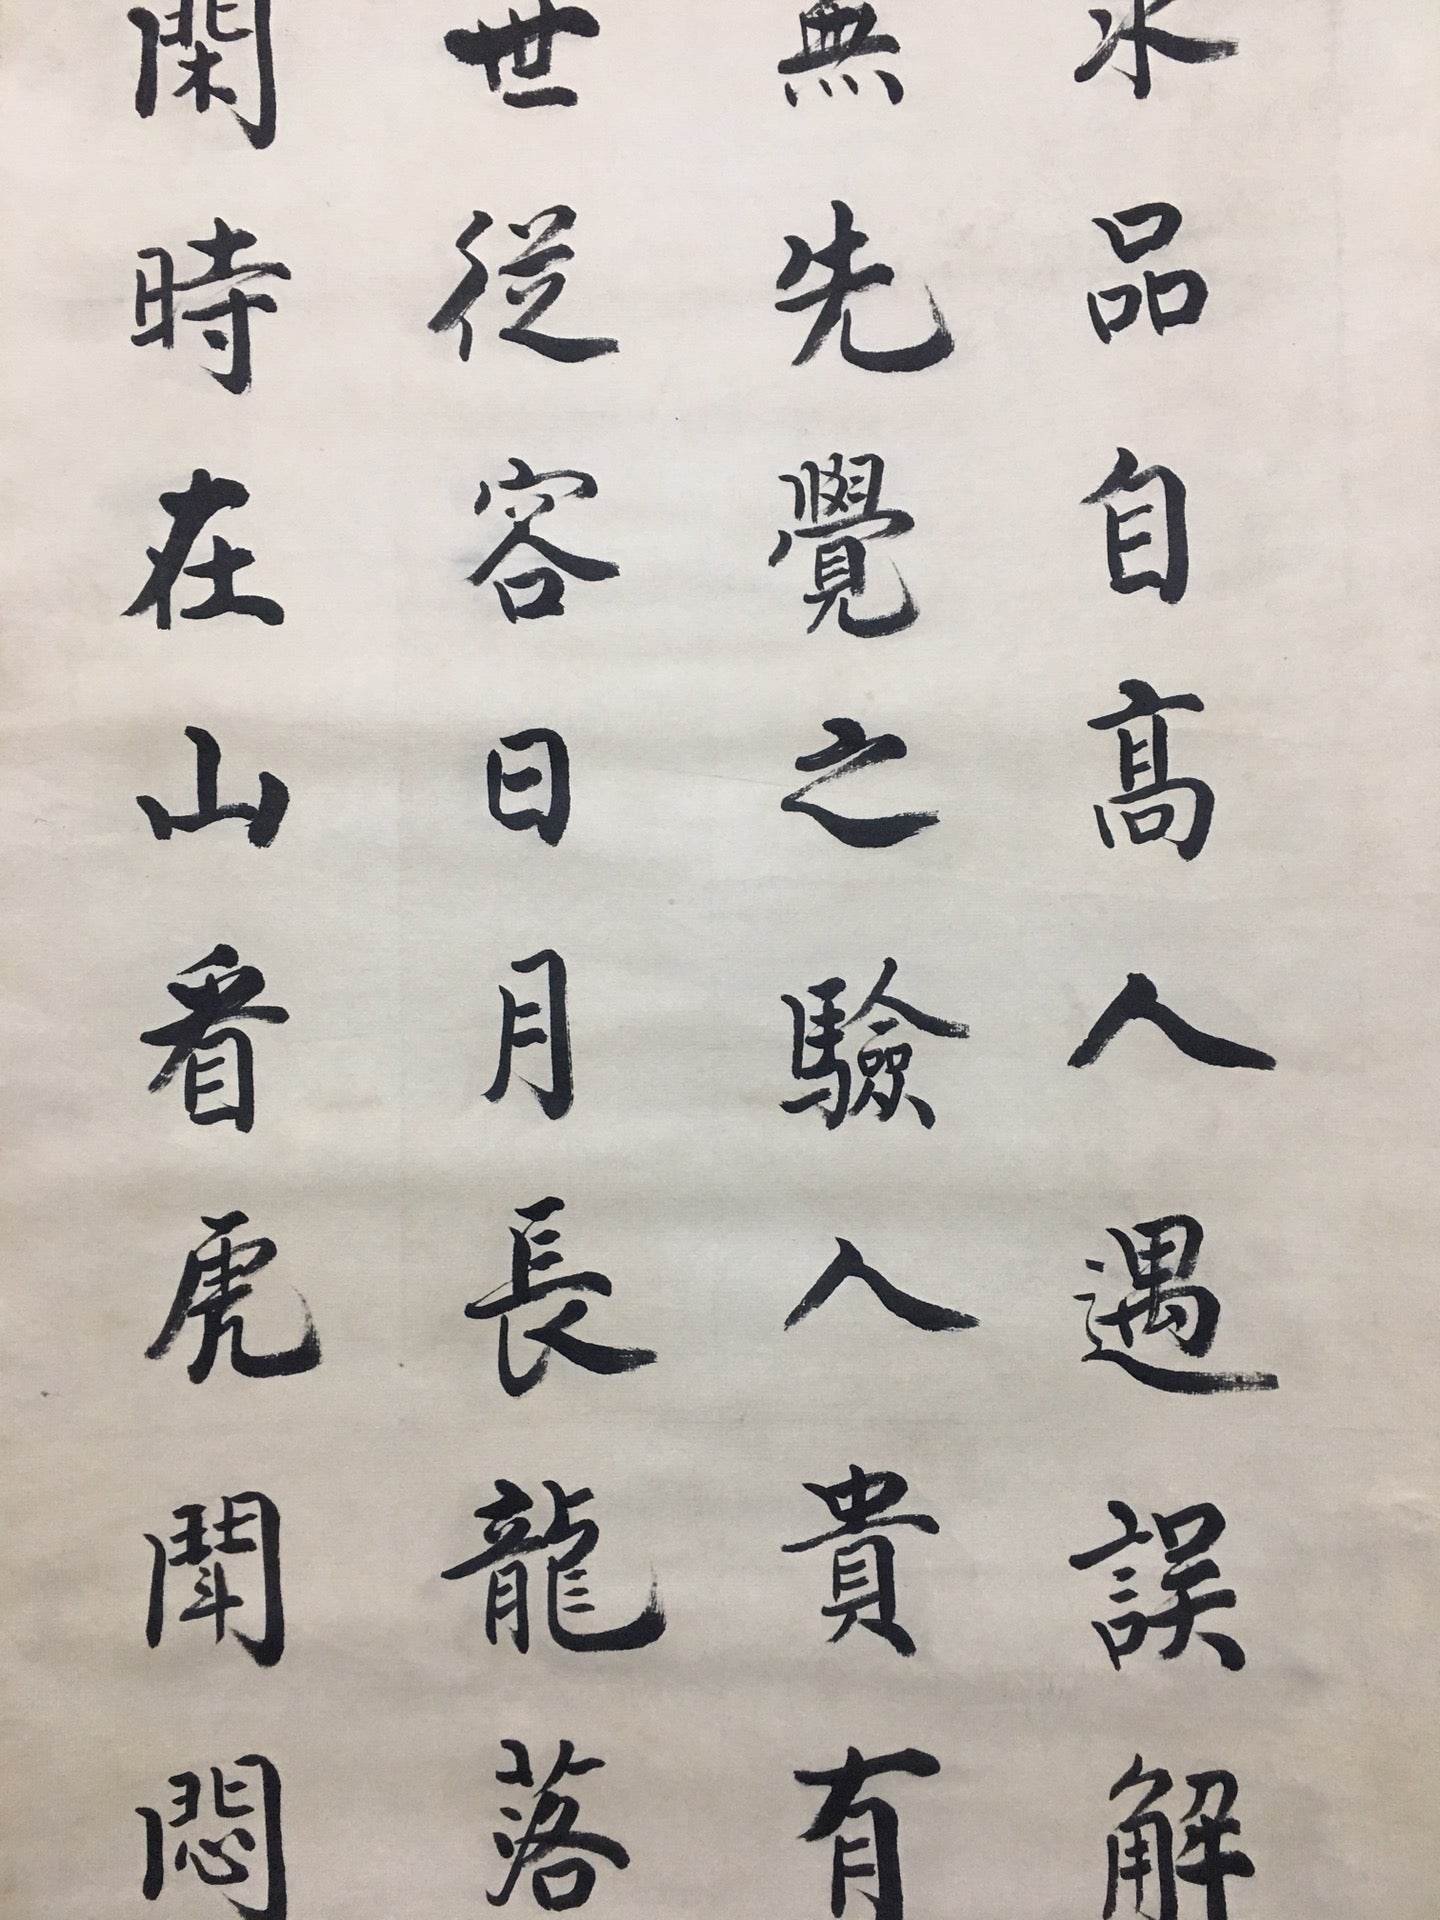 水品自高人遇誤解
無先覺之驗人貴有
世從容日月長龍落
閑時在山看虎鬪悶